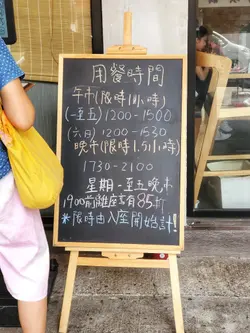 用餐時間
午市(限時1小時)
(一至五)1200-1500
(六日)1200-1530
晚市(限時1.5小時)
1730-2100
星期一至五晚市
1900前離座享有85折
*限時由入座開始計!